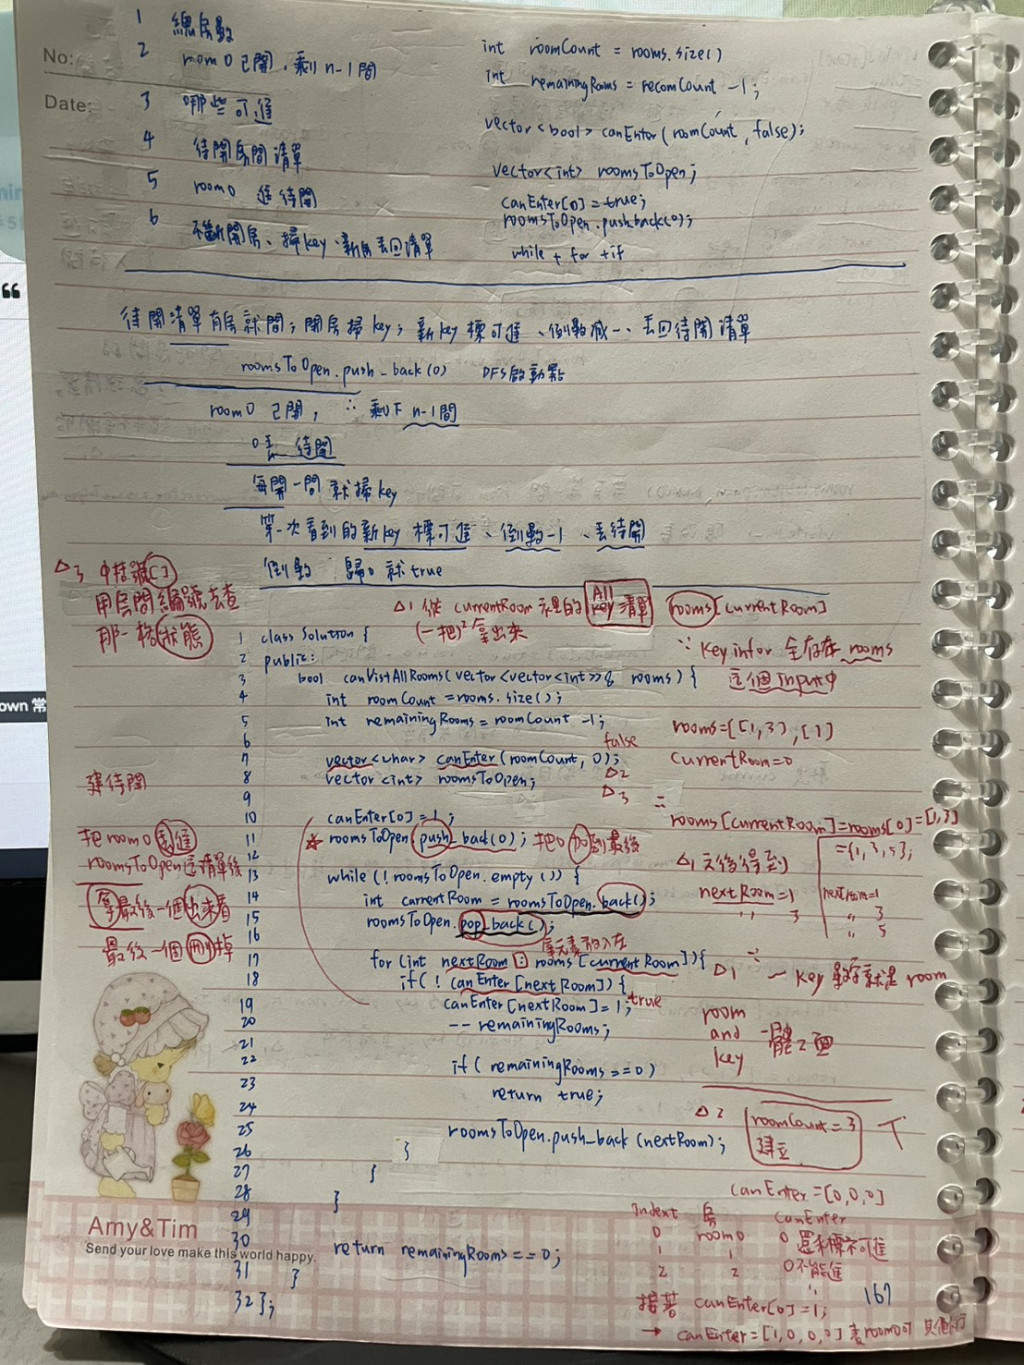 1 總房數 int roomCount = rooms.size()
No:
2 room 0 已開,剩 n-1間 int remainingRooms = roomCount -1;
Date:
3 哪些可進 vector<bool> canEnter(roomCount, false);
4 待開房間清單 vector<int> roomsToOpen;
5 room0 進待開 canEnter[0]=true;
roomsToOpen.pushback(0);
6 不斷開房、掃key、新房丟回清單 while + for + if
待開清單有房就開;開房掃key;新key標可進、倒數減一、丟回待開清單
roomsToOpen.push_back(0) DFS啟動點
room0 已開, ∴ 剩下 n-1間
0丟 待開
每開一間就掃key
第一次看到的新key 標可進、倒數-1、丟待開
倒數 歸0 就true
△3 中括號[]
用房間編號去查
那一格狀態
△1 從 currentRoom 這裡的 All key 清單 rooms[currentRoom]
(一把)² 拿出來
∵ key infor 全存在 rooms
這個 Input中
1 class Solution {
2 public:
3 bool canVistAllRooms(vector<vector<int>>& rooms) {
4 int roomCount = rooms.size();
5 int remainingRooms = roomCount -1;
6 false
7 vector<char> canEnter(roomCount, 0);
△2
8 vector<int> roomsToOpen;
△3
9
10 canEnter[0]=1;
11 roomsToOpen.push_back(0); 把0加到最後
12
13 while(!roomsToOpen.empty()) {
14 int currentRoom = roomsToOpen.back();
15 roomsToOpen.pop_back();
16
17 for(int nextRoom : rooms[currentRoom]){
18 if(!canEnter[nextRoom]) {
19 canEnter[nextRoom]=1; true
20 -- remainingRooms;
21
22 if( remainingRooms==0)
23 return true;
24
25 roomsToOpen.push_back(nextRoom);
26 }
27 }
28 }
29
30 return remainingRooms==0;
31 }
32 };
rooms=[[1,3],[1]
currentRoom=0
rooms[currentRoom]=rooms[0]=[1,3]
={1,3,5};
△1 天後得到
nextRoom=1
" 3
nextroom=1
" 3
" 5
△1 一 key 數字就是 room
room
and 一體2面
key
△2 roomCount=3
建立
canEnter=[0,0,0]
Indext 房 canEnter
0 room0 0 還未標不可進
1 1 0不能進
2 2 "
接著 canEnter[0]=1;
→ canEnter=[1,0,0,0] 表room0可
建待開
把room0 塞進
roomsToOpen這清單後
拿最後一個出來看
最後一個刪掉
Amy&Tim
Send your love make this world happy.
167
own 常